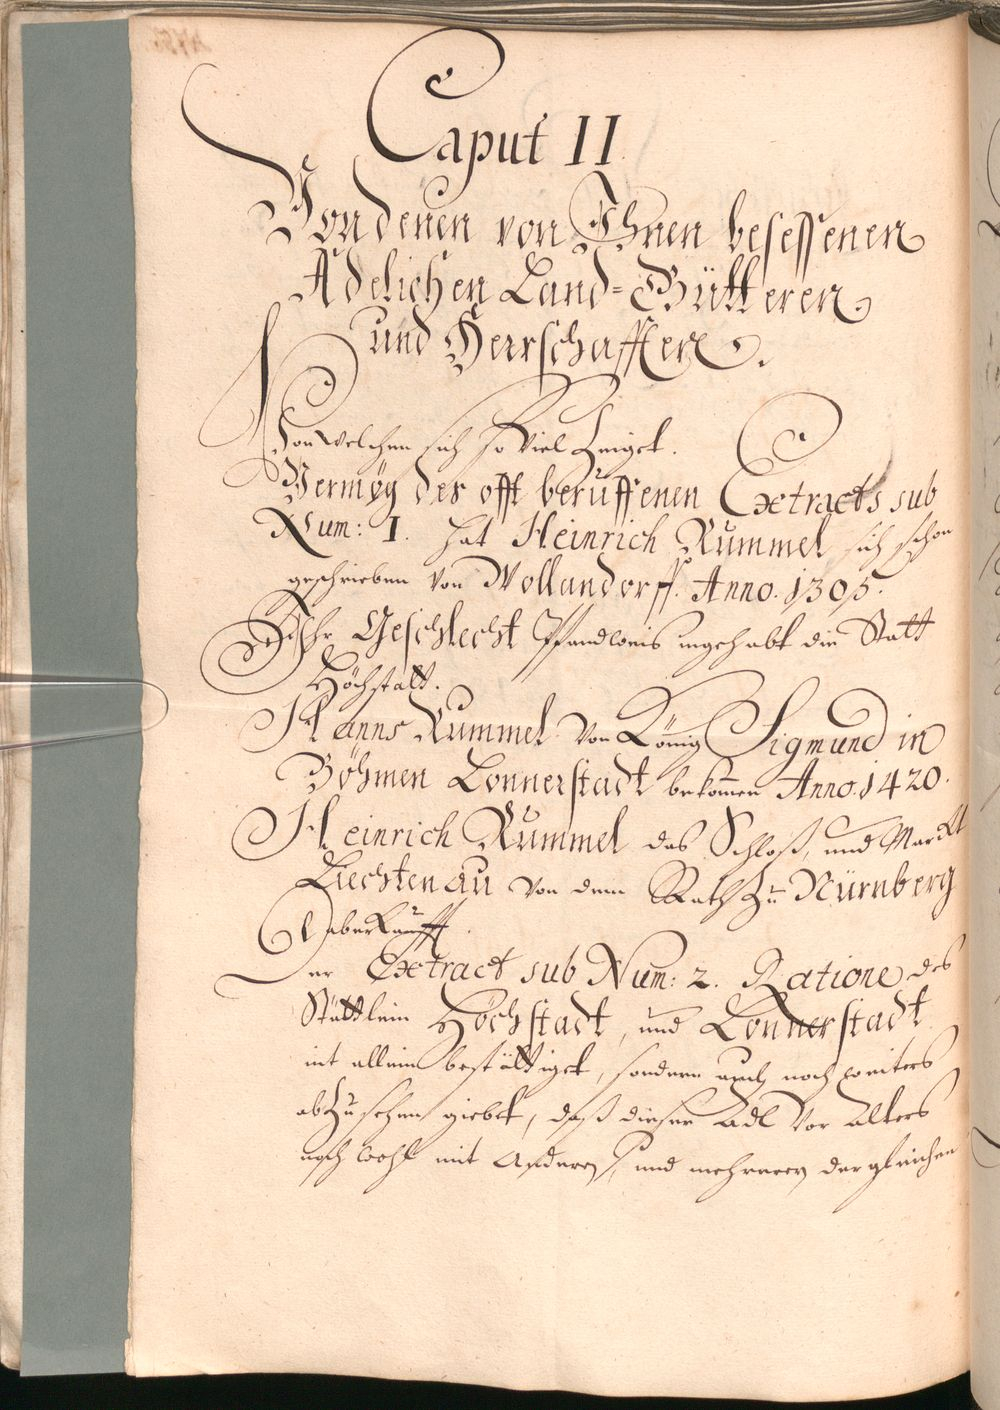 Caput II.
Von denen von Ihnen besessenen
Adelichen Land-Gütteren,
und Herrschafften.
Von welchen sich so viel Zeiget.
Vermög des offt beruffenen Extracts sub
Num: I. hat Heinrich Rummel sich schon
geschrieben von Wollandorff. Anno. 1305.
Ihr Geschlecht Pfandweis ingehabt die Statt
Höchstatt.
Hanns Rummel von König Sigmund in
Böhmen Lonnerstadt bekommen Anno. 1420.
Heinrich Rummel das Schloß, und Marckt
Liechtenau von dem Rath zu Nürnberg
aberkaufft.
Der Extract sub Num: 2. Ratione des
Stättlein Höchstadt, und Lonnerstadt
nit allein bestättiget, sondern auch noch weiters
abzusehen giebet, daß dieser Adl vor Alters
noch wohl mit anderen, und mehreren dergleichen